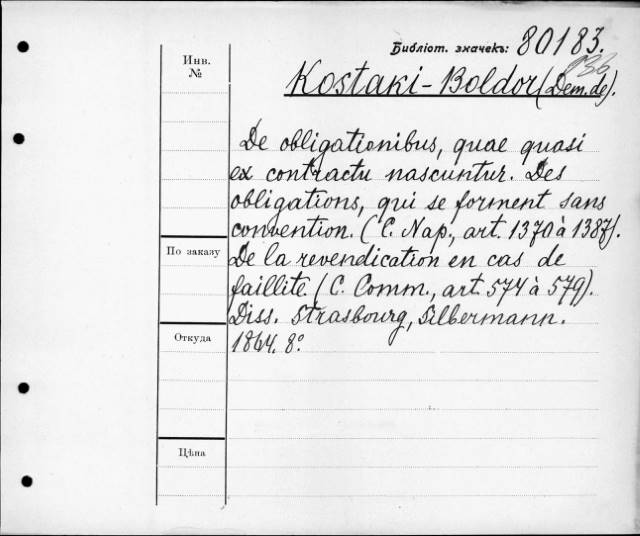 Библіот. значекъ: 80183.
Инв.
№
Kostaki-Boldor (Dem. de).
De obligationibus, quae quasi
ex contractu nascuntur. Des
obligations, qui se forment sans
convention. (C. Nap., art. 1370 à 1387).
По заказу
De la revendication en cas de
faillite. (C. Comm., art. 574 à 579).
Diss. Strasbourg, Silbermann.
Откуда
1864. 8°.
Цѣна